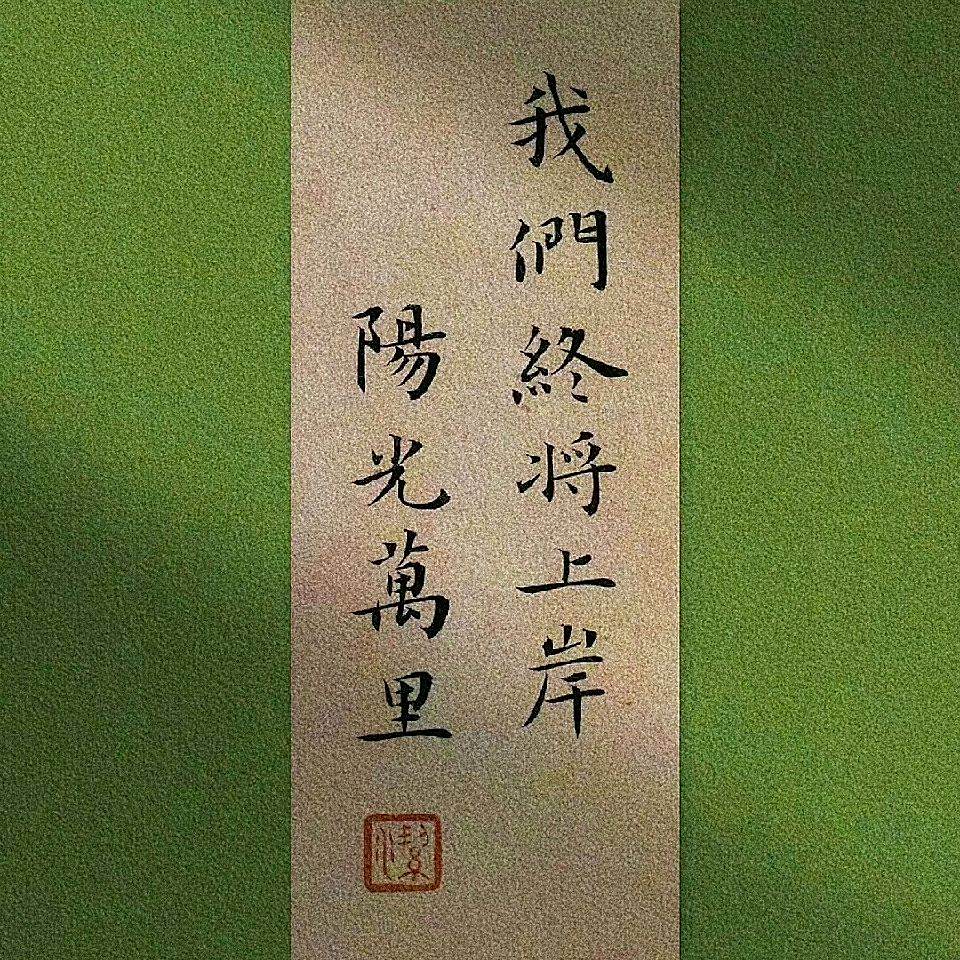 我們終将上岸
陽光萬里
潔